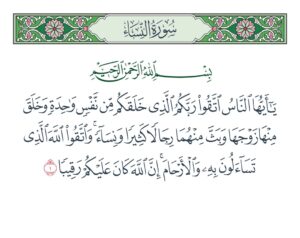 سُورَةُ النِّسَاءِ
بِسْمِ اللَّهِ الرَّحْمَٰنِ الرَّحِيمِ
يَٰٓأَيُّهَا ٱلنَّاسُ ٱتَّقُوا۟ رَبَّكُمُ ٱلَّذِى خَلَقَكُم مِّن نَّفْسٍ وَٰحِدَةٍ وَخَلَقَ
مِنْهَا زَوْجَهَا وَبَثَّ مِنْهُمَا رِجَالًا كَثِيرًا وَنِسَآءً ۚ وَٱتَّقُوا۟ ٱللَّهَ ٱلَّذِى
تَسَآءَلُونَ بِهِۦ وَٱلْأَرْحَامَ ۚ إِنَّ ٱللَّهَ كَانَ عَلَيْكُمْ رَقِيبًا ١